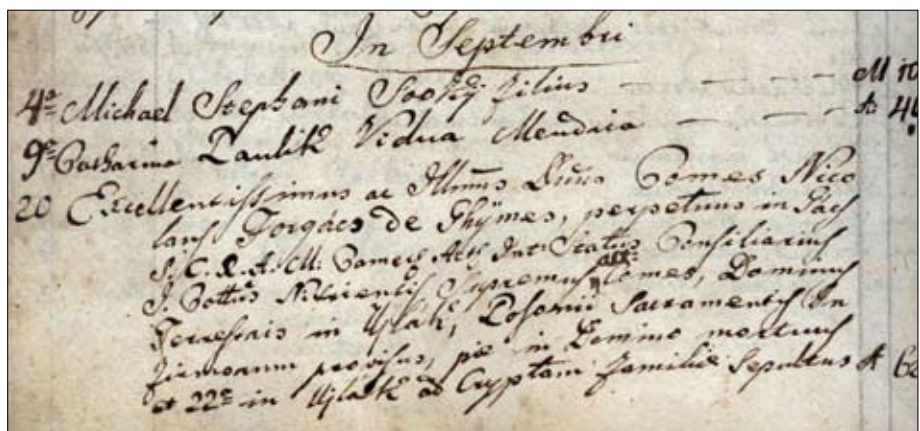 In Septembri
4ª Michael Stephani Sooky filius — — — — — M 10
9ª Catharina Paulik Vidua Mendica — — — A 4
20 Excellentissimus ac Illmus Dnus Comes Nico
laus Forgács de Ghÿmes, perpetuus in Gács
S. C. R. A. M. Camers Act Int Status Consiliarius
I. Cottus Nitriensis Supremus Comes, Dominus
Terrestris in Ujlak, Posonii Sacramentis In
firmorum provisus, pie in Domino mortuus
et 22ª in Ujlak ad Cryptam familiæ Sepultus A 6